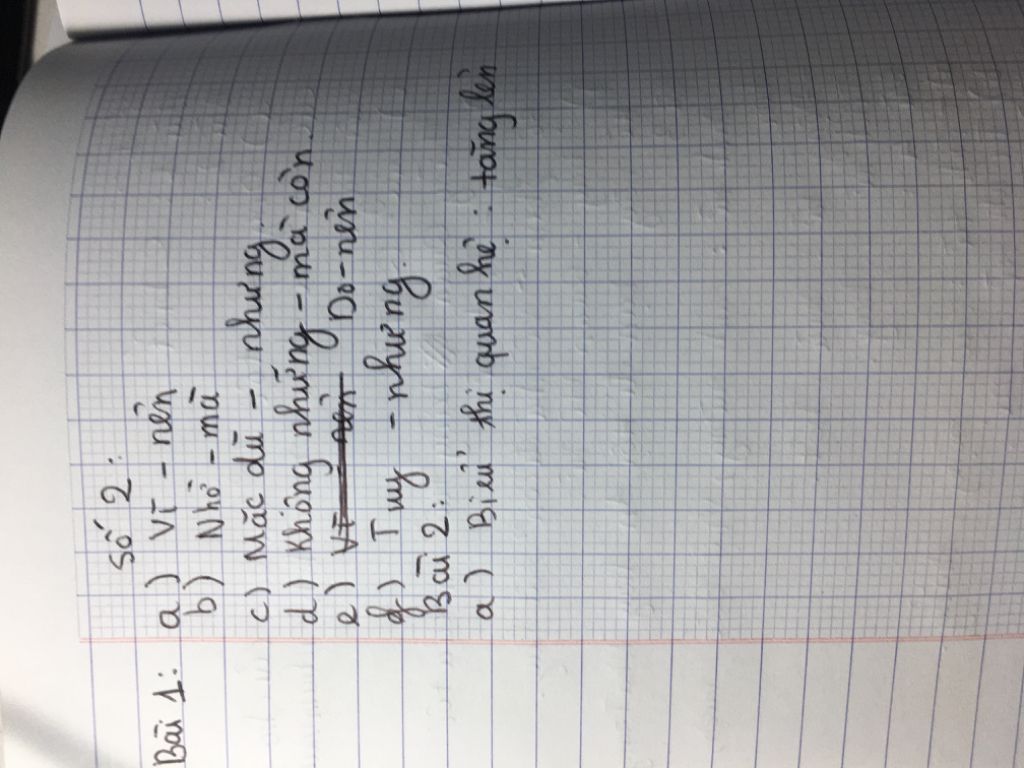 Số 2:
Bài 1: a) Vì - nên
b) Nhờ - mà
c) Mặc dù - nhưng.
d) Không những - mà còn.
e) Vì - nên Do - nên
g) Tuy - nhưng.
Bài 2:
a) Biểu thị quan hệ: tăng lên